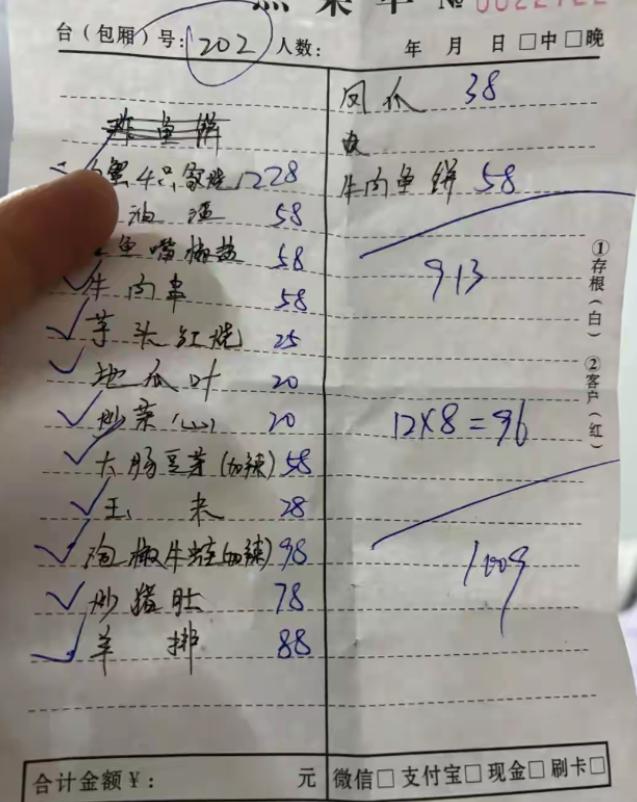 点菜单 №
台（包厢）号： 202 人数： 年 月 日 □中 □晚
蟹4只家烧 228
油渣 58
鱼嘴椒盐 58
牛肉串 58
芋头红烧 25
地瓜叶 20
炒菜（山） 20
大肠豆芽（加辣） 58
玉米 28
泡椒牛蛙（加辣） 98
炒猪肚 78
羊排 88
凤爪 38
牛肉鱼饼 58
913
12×8=96
1009
①存根（白） ②客户（红）
合计金额￥： 元 微信□ 支付宝□ 现金□ 刷卡□